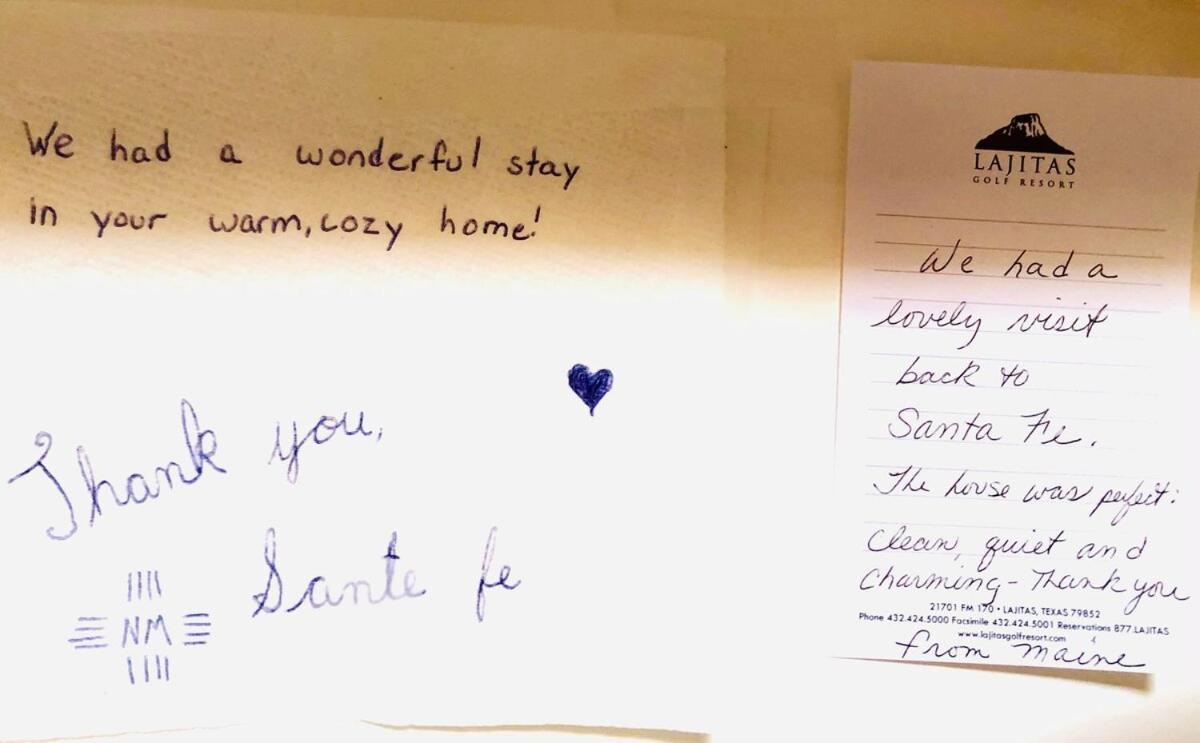 We had a wonderful stay
in your warm, cozy home!
Thank you,
Sante fe
NM
LAJITAS
GOLF RESORT
We had a
lovely visit
back to
Santa Fe.
The house was perfect:
Clean, quiet and
Charming - Thank you
21701 FM 170 • LAJITAS, TEXAS 79852
Phone 432.424.5000 Facsimile 432.424.5001 Reservations 877.LAJITAS
www.lajitasgolfresort.com
from Maine